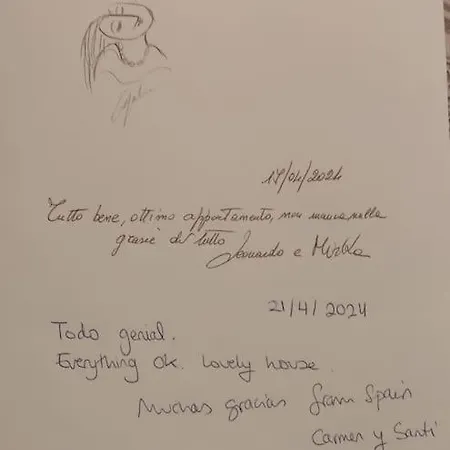 17/04/2024
Tutto bene, ottimo appartamento, non manca nulla
grazie di tutto Leonardo e Mirka
21/4/2024
Todo genial.
Everything ok. Lovely house.
Muchas gracias from Spain
Carmen y Santi